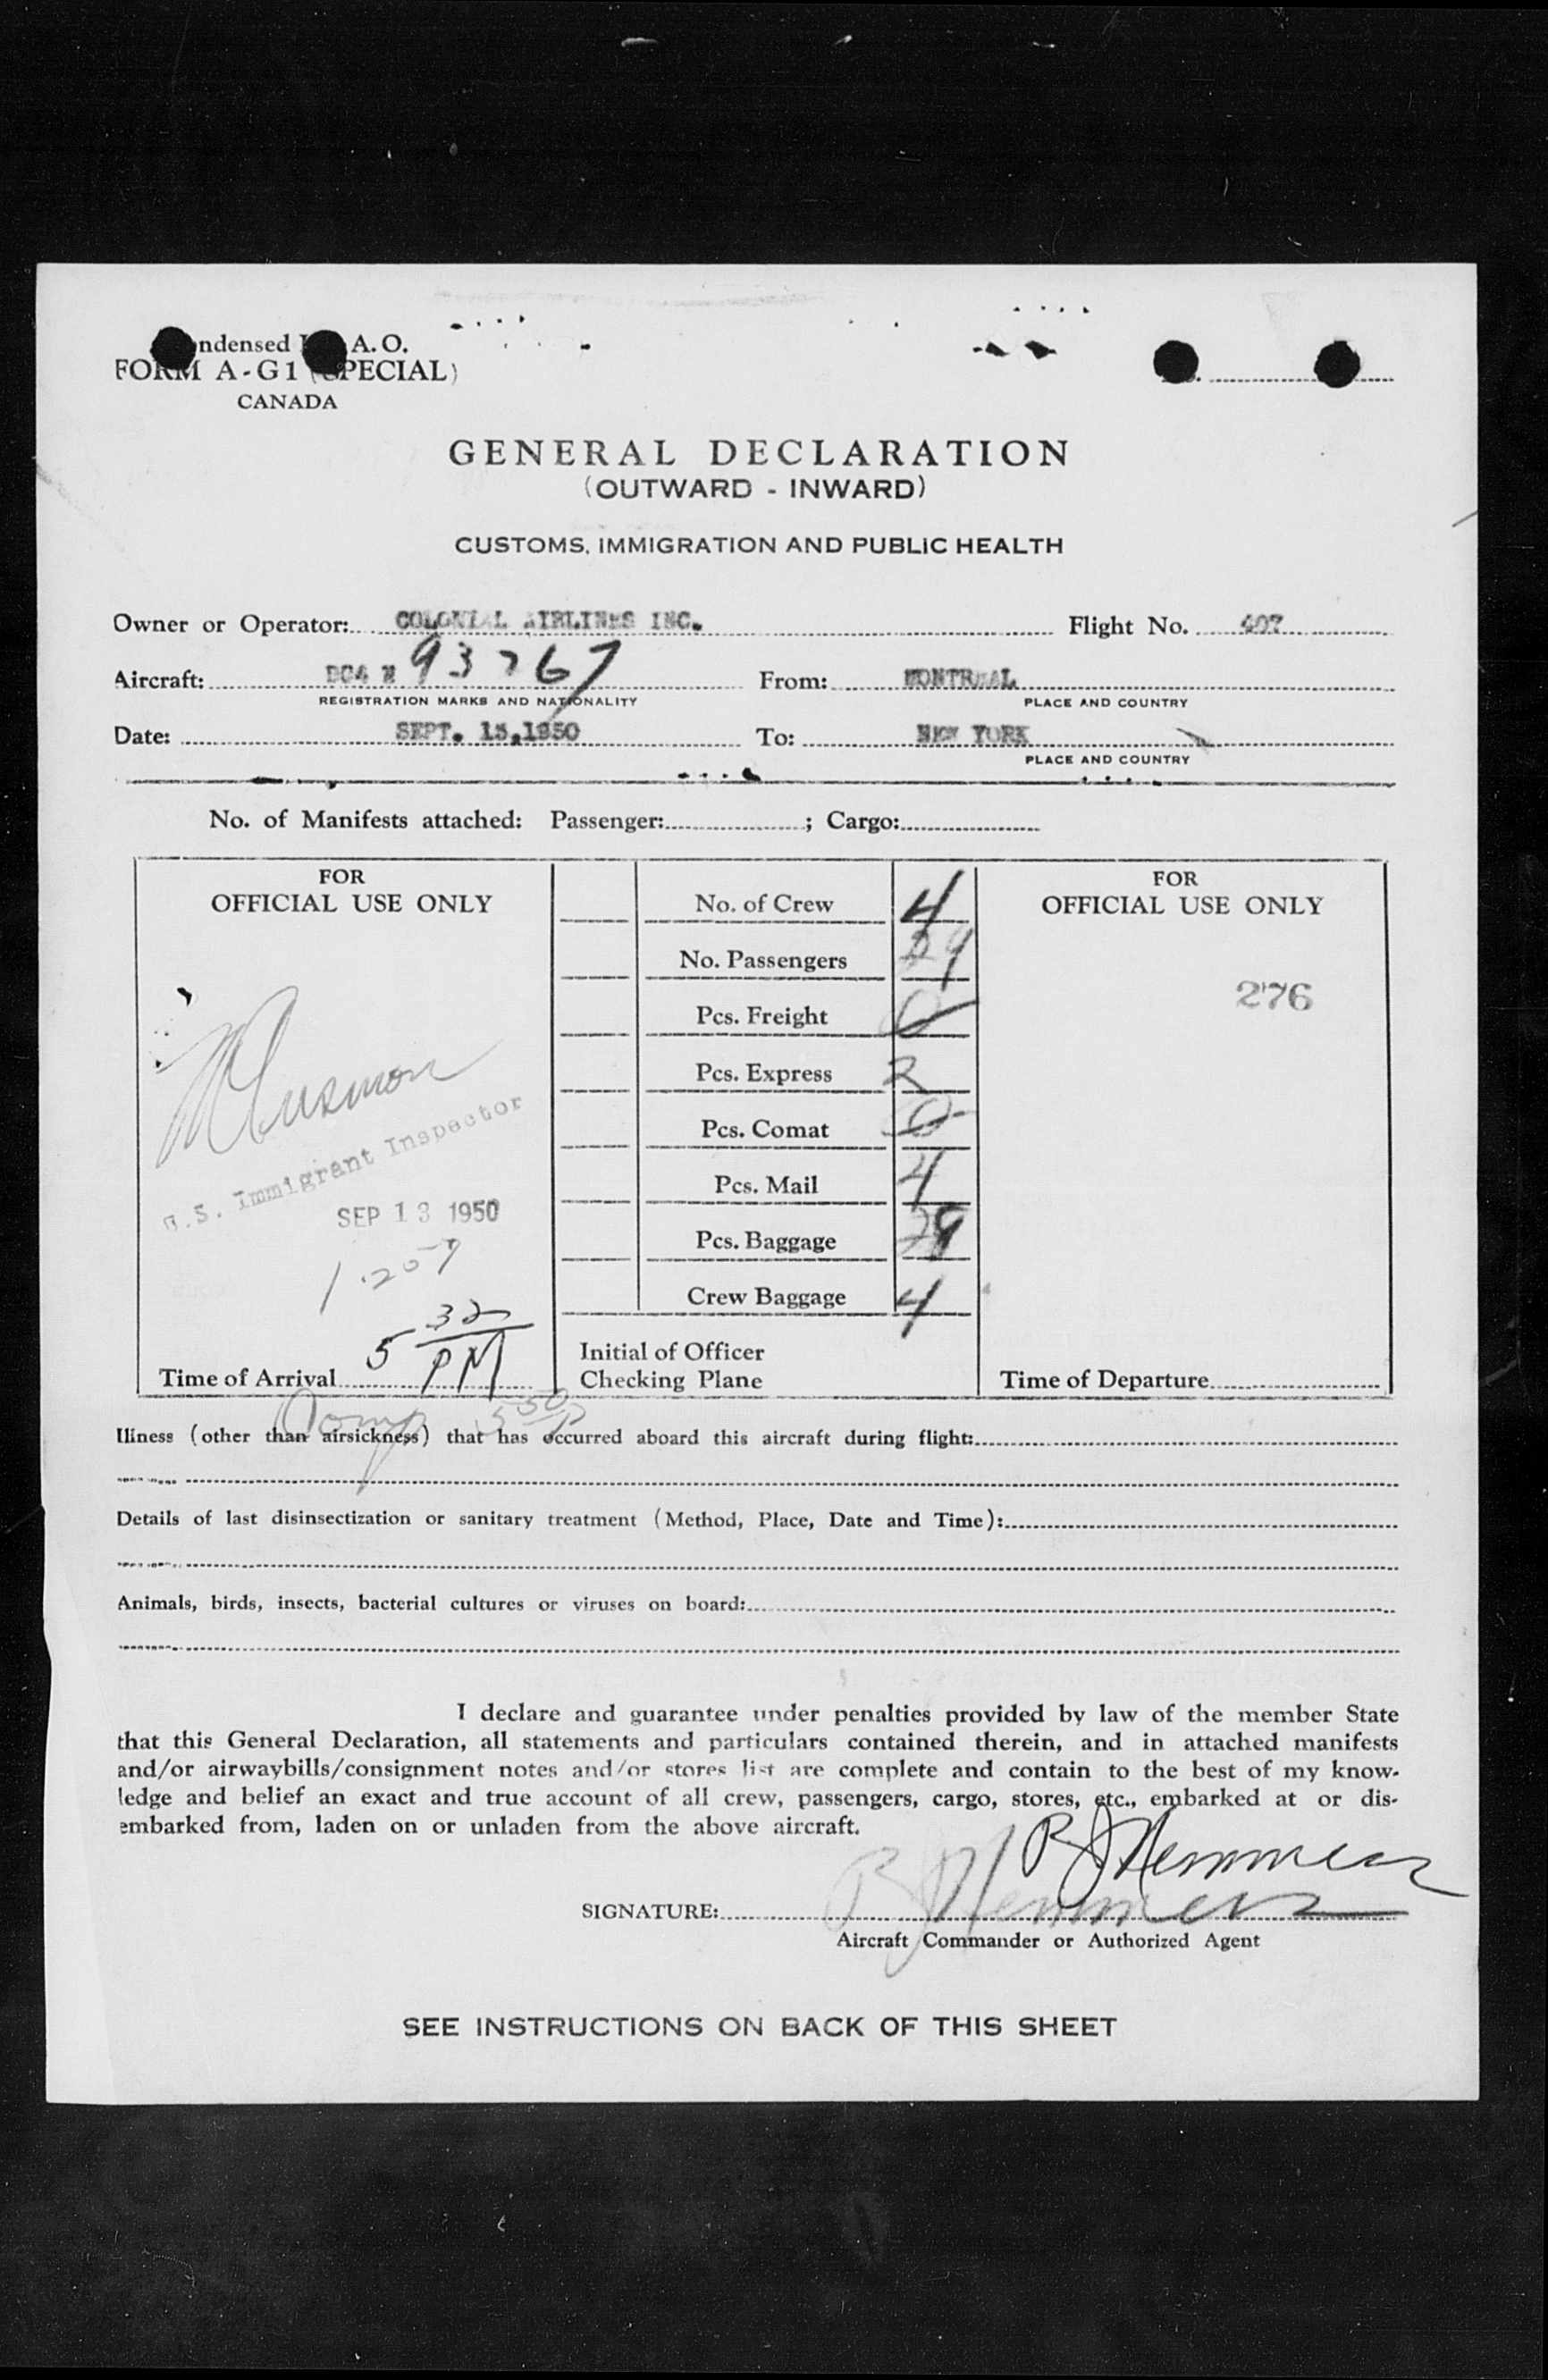 ndensed A. O.
FORM A-G1 (SPECIAL)
CANADA
GENERAL DECLARATION
(OUTWARD - INWARD)
CUSTOMS, IMMIGRATION AND PUBLIC HEALTH
Owner or Operator: COLONIAL AIRLINES INC. Flight No. 407
Aircraft: DC4 N 93267 From: MONTREAL
REGISTRATION MARKS AND NATIONALITY PLACE AND COUNTRY
Date: SEPT. 13,1950 To: NEW YORK
PLACE AND COUNTRY
No. of Manifests attached: Passenger: ; Cargo:
FOR
OFFICIAL USE ONLY
U.S. Immigrant Inspector
SEP 13 1950
5 32
PM
Time of Arrival
No. of Crew 4
No. Passengers 29
Pcs. Freight 0
Pcs. Express 2
Pcs. Comat 0
Pcs. Mail 4
Pcs. Baggage 29
Crew Baggage 4
Initial of Officer
Checking Plane
FOR
OFFICIAL USE ONLY
276
Time of Departure
Illness (other than airsickness) that has occurred aboard this aircraft during flight:
Details of last disinsectization or sanitary treatment (Method, Place, Date and Time):
Animals, birds, insects, bacterial cultures or viruses on board:
I declare and guarantee under penalties provided by law of the member State
that this General Declaration, all statements and particulars contained therein, and in attached manifests
and/or airwaybills/consignment notes and/or stores list are complete and contain to the best of my know-
ledge and belief an exact and true account of all crew, passengers, cargo, stores, etc., embarked at or dis-
embarked from, laden on or unladen from the above aircraft.
R J Hemmers
SIGNATURE: R J Hemmers
Aircraft Commander or Authorized Agent
SEE INSTRUCTIONS ON BACK OF THIS SHEET